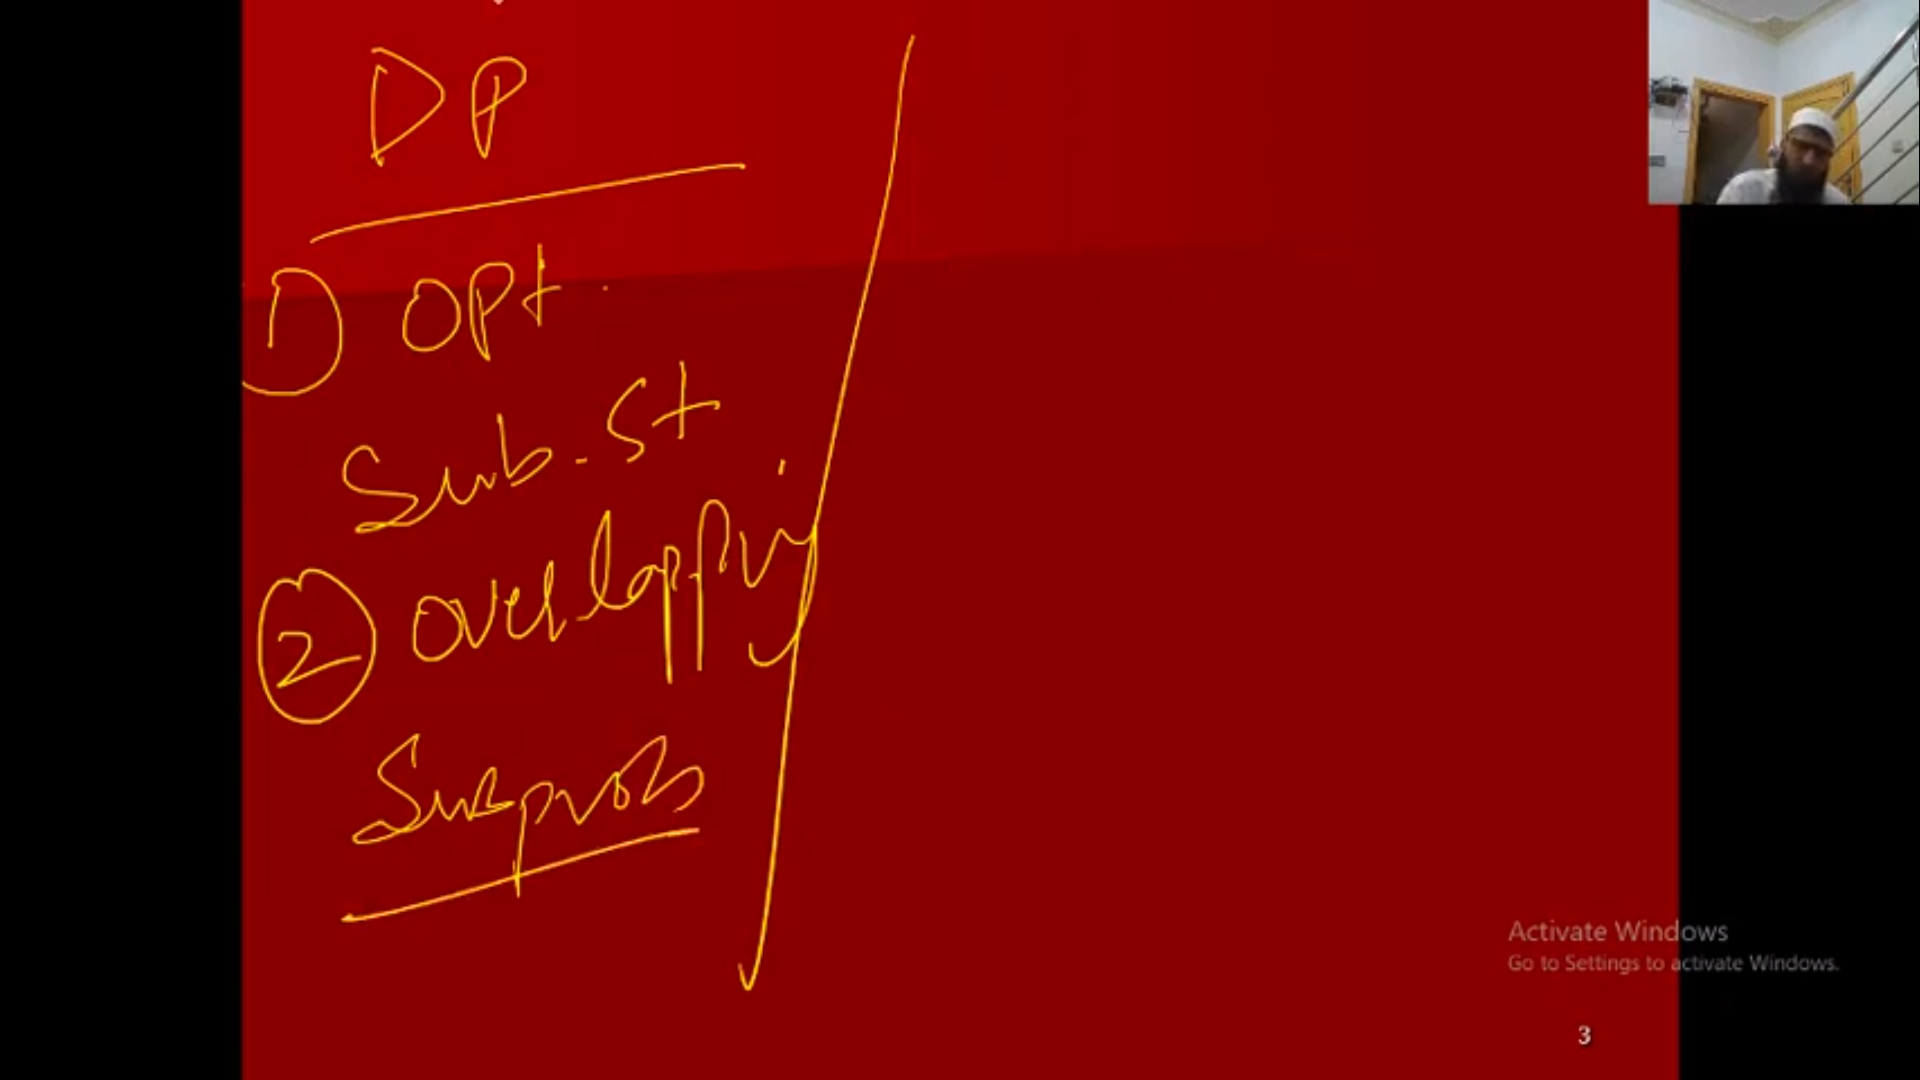 DP
1) Opt.
Sub. St
2 Overlapping
Subprob
Activate Windows
Go to Settings to activate Windows.
3